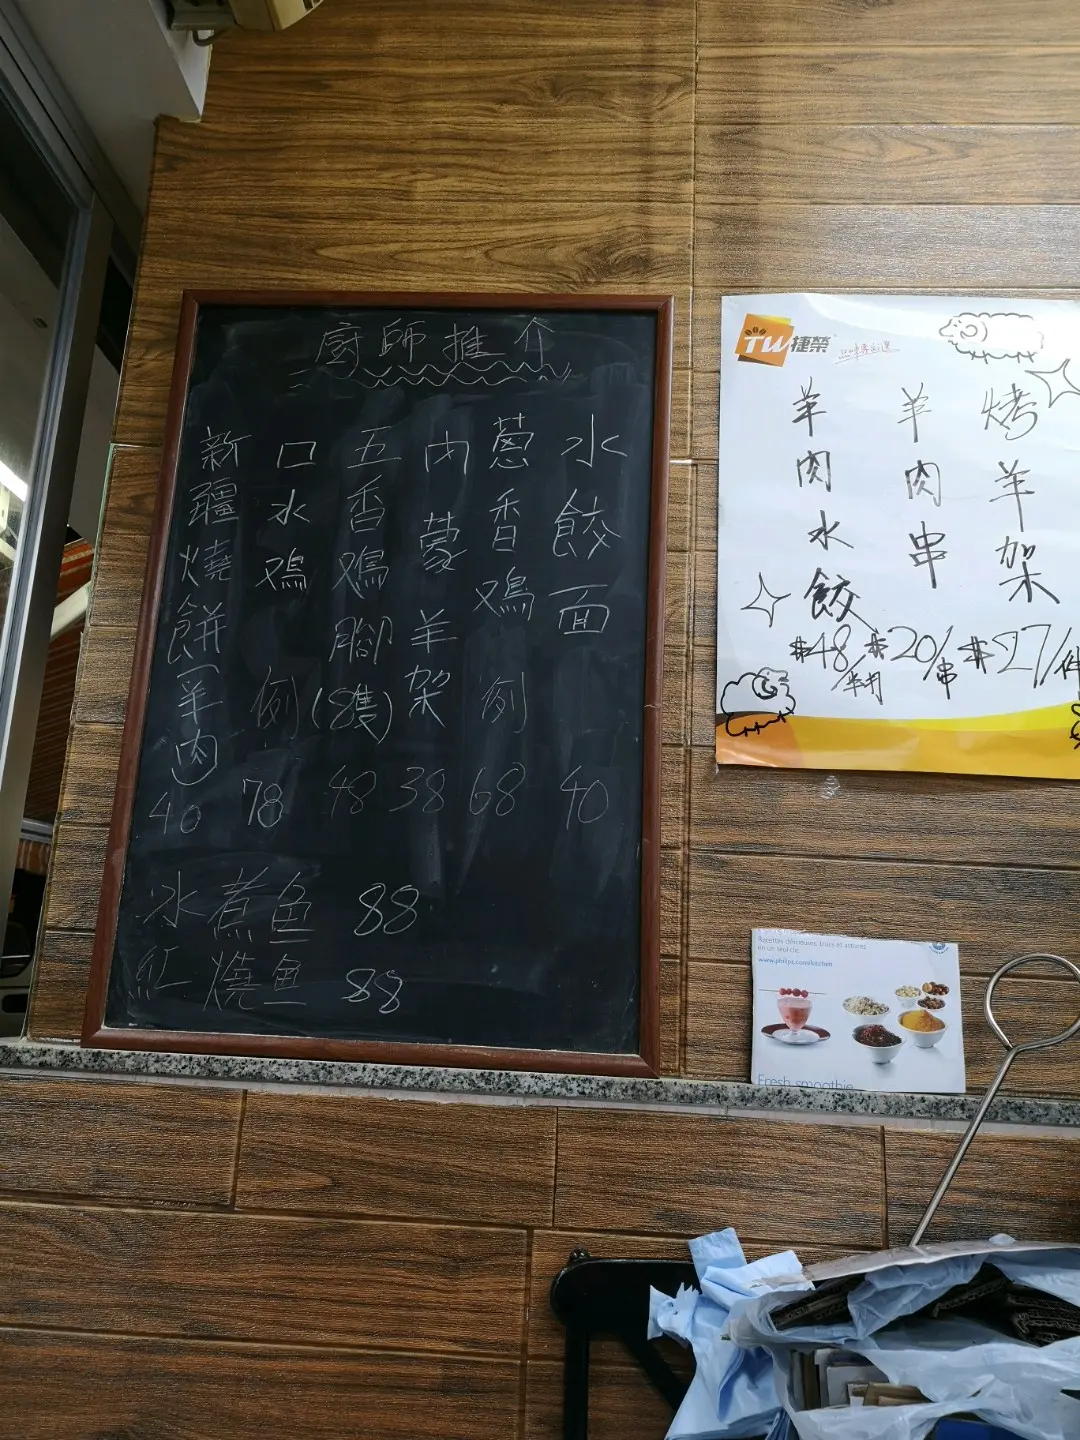 廚師推介
水餃面 40
蔥香鳮例 68
內蒙羊架 38
五香鳮腳(8隻) 48
口水鳮例 78
新疆燒餅(羊肉) 40
水煮魚 88
紅燒魚 88
TW捷榮
烤羊架 $27/件
羊肉串 $20/串
羊肉水餃 $48/半打
Recettes délicieuses, trucs et astuces
en un seul clic
www.philips.com/kitchen
Fresh smoothie